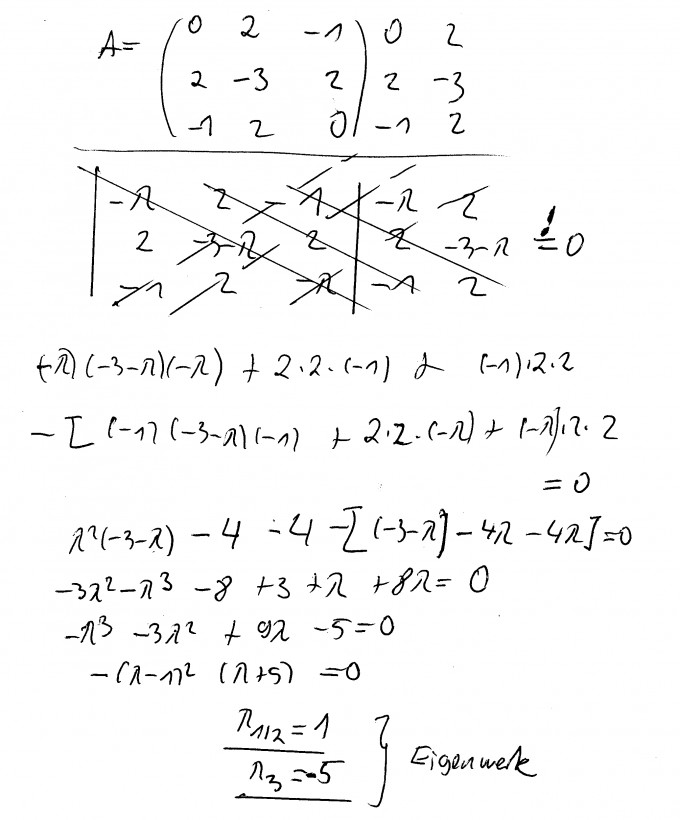 A= ( 0 2 -1 ) 0 2
2 -3 2 2 -3
-1 2 0 -1 2
| -λ 2 -1 | -λ 2
2 -3-λ 2 2 -3-λ != 0
-1 2 -λ -1 2
(-λ)(-3-λ)(-λ) + 2·2·(-1) + (-1)·2·2
- [ (-1) (-3-λ)(-1) + 2·2·(-λ) + (-λ)·2·2
= 0
λ²(-3-λ) - 4 - 4 - [(-3-λ] - 4λ - 4λ] = 0
-3λ² - λ³ - 8 + 3 + λ + 8λ = 0
-λ³ - 3λ² + 9λ - 5 = 0
-(λ-1)² (λ+5) = 0
λ1/2 = 1
λ3 = -5 } Eigenwerte